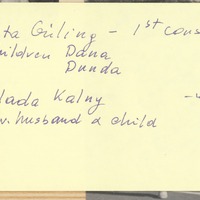 ta Güling - 1st cous
hildren Dana
Dunda
lada Kalny -
w. husband & child